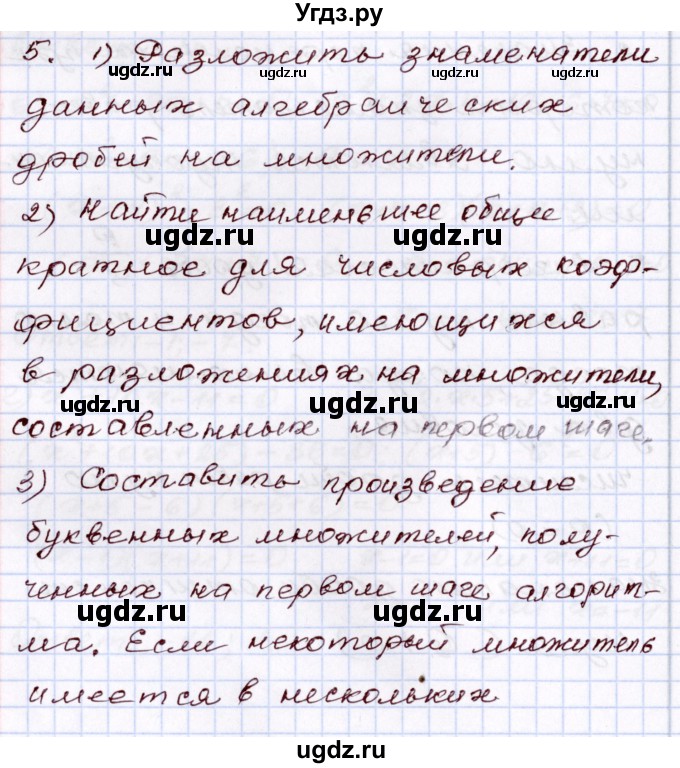 Угдз.ру
5. 1) Разложить знаменатели
ugdz.ru ugdz.ru
данных алгебраических
дробей на множители.
2) Найти наименьшее общее
ugdz.ru ugdz.ru
кратное для числовых коэф-
фициентов, имеющихся
в разложениях на множители,
ugdz.ru ugdz.ru
составленных на первом шаге.
3) Составить произведение
ugdz.ru ugdz.ru
буквенных множителей, полу-
ченных на первом шаге алгорит-
ugdz.ru ugdz.ru
ма. Если некоторый множитель
имеется в нескольких
ugdz.ru